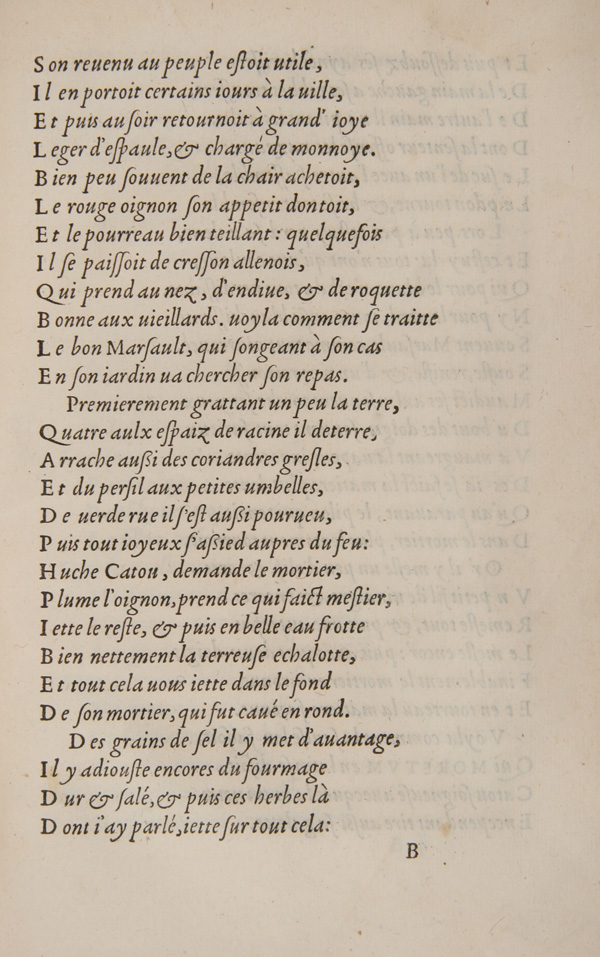 Son reuenu au peuple eſtoit utile,
Il en portoit certains iours à la uille,
Et puis au ſoir retournoit à grand' ioye
Leger d'eſpaule, & chargé de monnoye.
Bien peu ſouuent de la chair achetoit,
Le rouge oignon ſon appetit dontoit,
Et le pourreau bien teillant: quelquefois
Il ſe paiſſoit de creſſon allenois,
Qui prend au nez, d'endiue, & de roquette
Bonne aux uieillards. uoyla comment ſe traitte
Le bon Marſault, qui ſongeant à ſon cas
En ſon iardin ua chercher ſon repas.
Premierement grattant un peu la terre,
Quatre aulx eſpaiz de racine il deterre,
Arrache außi des coriandres greſles,
Et du perſil aux petites umbelles,
De uerde rue il ſ'eſt außi pourueu,
Puis tout ioyeux ſ'aßied aupres du feu:
Huche Catou, demande le mortier,
Plume l'oignon, prend ce qui faict meſtier,
Iette le reſte, & puis en belle eau frotte
Bien nettement la terreuſe echalotte,
Et tout cela uous iette dans le fond
De ſon mortier, qui fut caué en rond.
Des grains de ſel il y met d'auantage,
Il y adiouſte encores du fourmage
Dur & ſalé, & puis ces herbes là
Dont i'ay parlé, iette ſur tout cela:
B